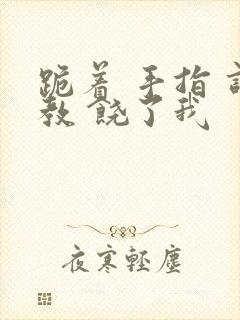 跪着 手指 
教 饶了我
夜寒轻塵